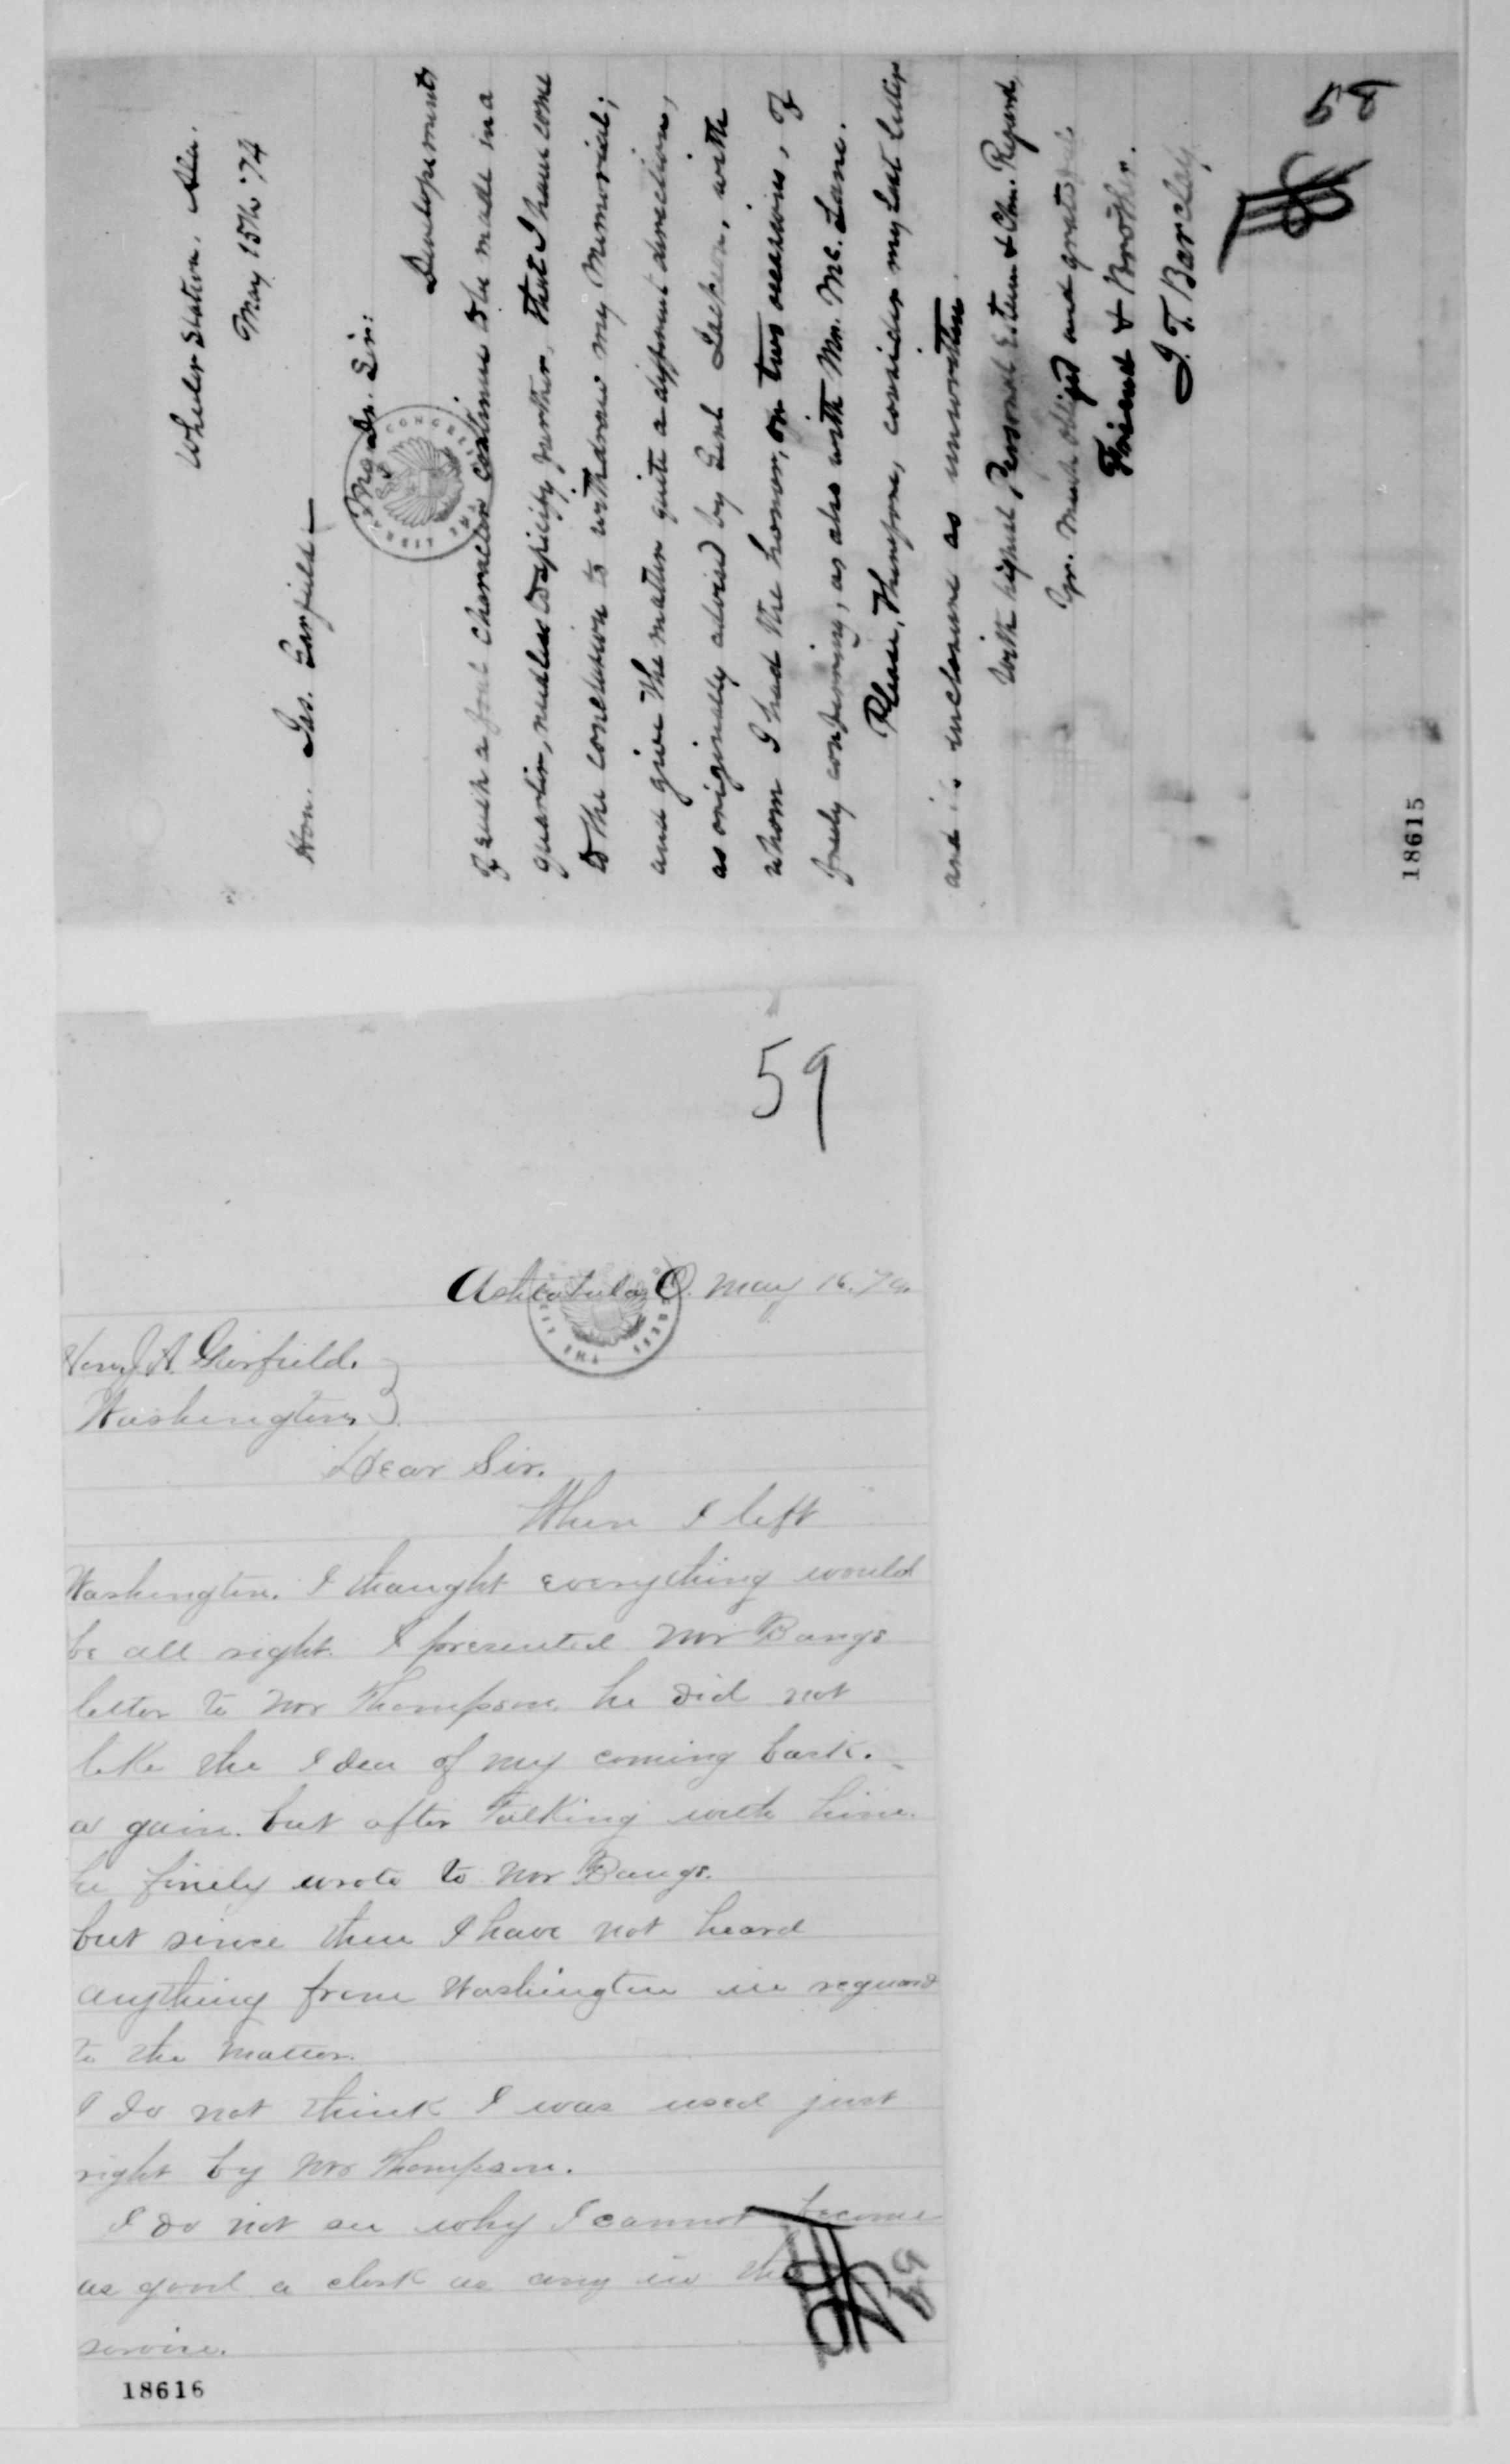 Wheeler Station, Ala.
May 15th '74
Hon. Jas. Garfield—
My Dr. Sir:
Developements
of such a foul character continue to be made in a
quarter, needless to specify further, that I have come
to the conclusion to withdraw my Memorial;
and give the matter quite a different direction,
as originally advised by Genl Jackson, with
whom I had the honor, on two occasions, of
freely conferring, as also with Mr. Mc. Lane.
Please, Therefore, consider my last letter
and its enclosure as unwritten.
With highest Personal Esteem & Chn. Regard,
Yr. Much obliged and grateful
Friend & Brother.
J. T. Barclay
58
18615
59
Ashtabula O. May 16. 74.
Hon J A. Garfield.
Washington
Dear Sir.
When I left
Washington. I thaught everything would
be all right. I presented Mr Bangs
letter to Mr Thompson. he did not
like the Idea of my coming back.
a gain. but after Talking with him.
he finely wrote to Mr Bangs.
but since then I have not heard
anything from Washington in reguard
to the matter.
I do not think I was used just
right by Mr Thompson.
I do not see why I cannot become
as good a clerk as any in the
service.
59
18616